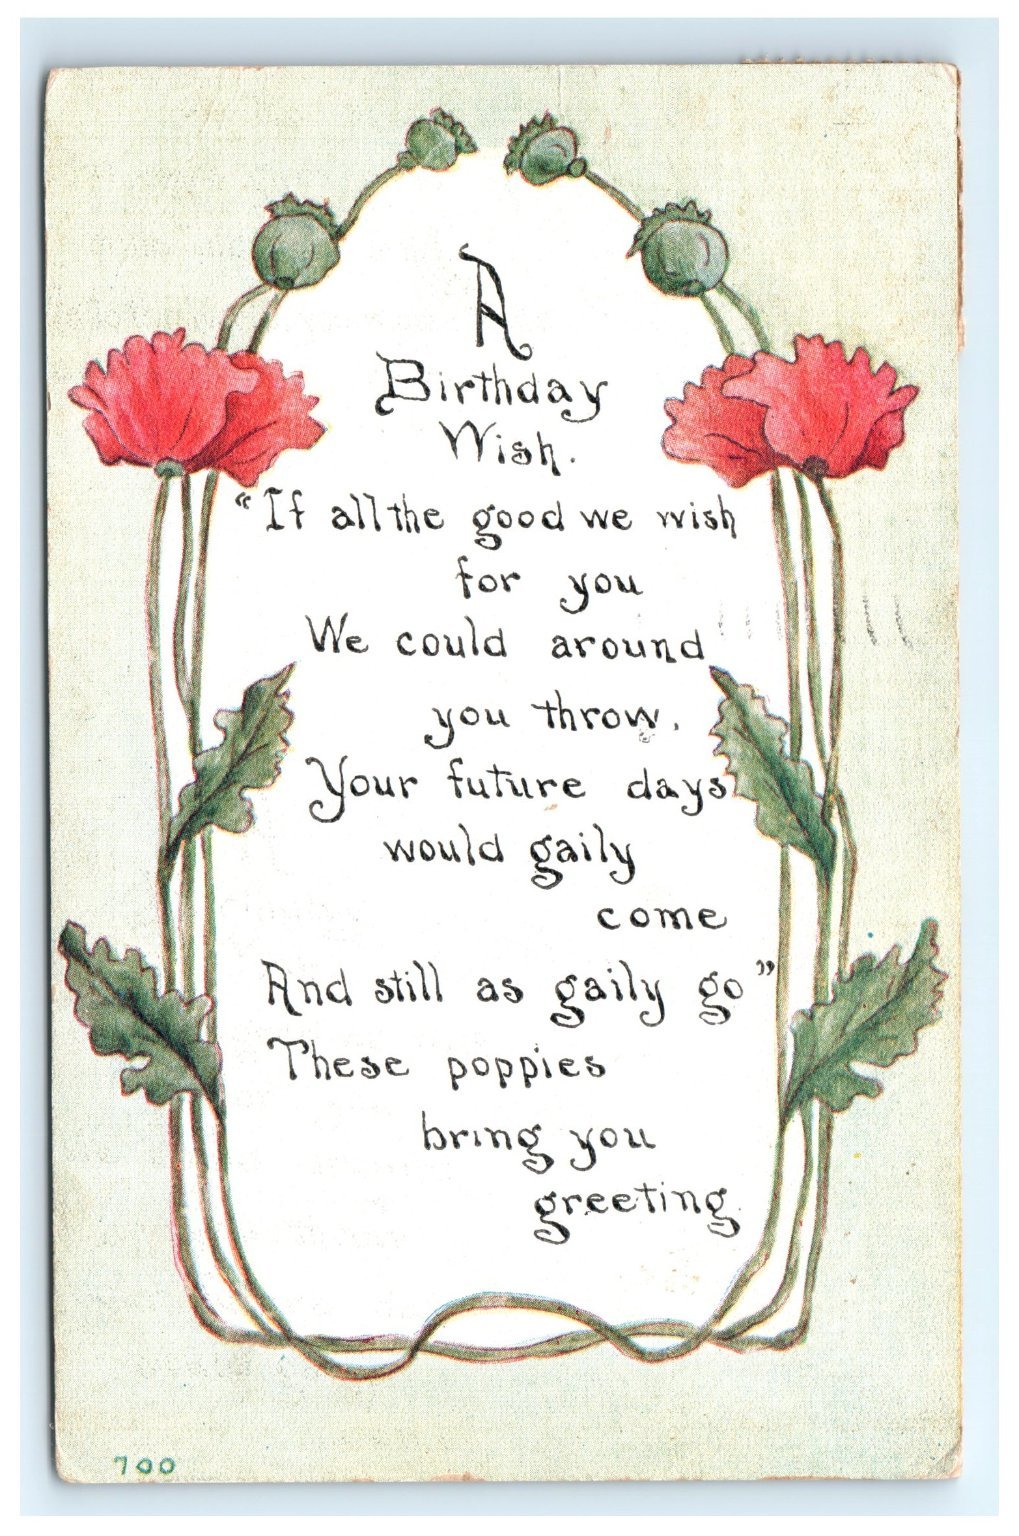 A
Birthday
Wish.
“If all the good we wish
for you
We could around
you throw,
Your future days
would gaily
come
And still as gaily go”
These poppies
bring you
greeting.
700